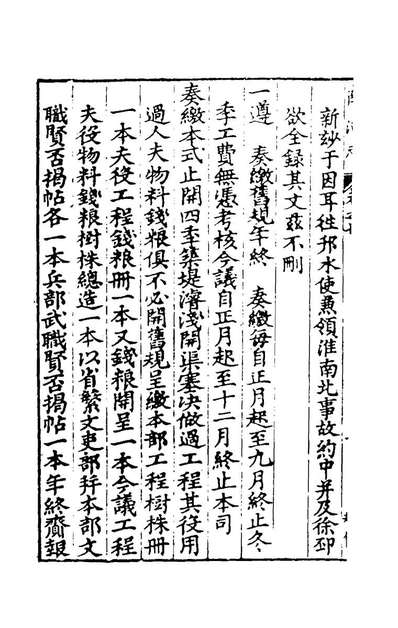 新鈔于因耳徃邗水使兼領淮南北事故約中并及徐邳
欲全録其文茲不刪
一遵　奏繳舊規年終　奏繳毎自正月起至九月終止冬
季工費無憑考核今議自正月起至十二月終止本司
奏繳本式止開四季築堤濬淺開渠塞决做過工程其役用
過人夫物料錢粮俱不必開舊規呈繳本部工程樹株冊
一本夫役工程錢粮冊一本又錢粮開呈一本今議工程
夫役物料錢粮樹株總造一本以省繁文吏部幷本部文
職賢否揭帖各一本兵部武職賢否揭帖一本年終賫報